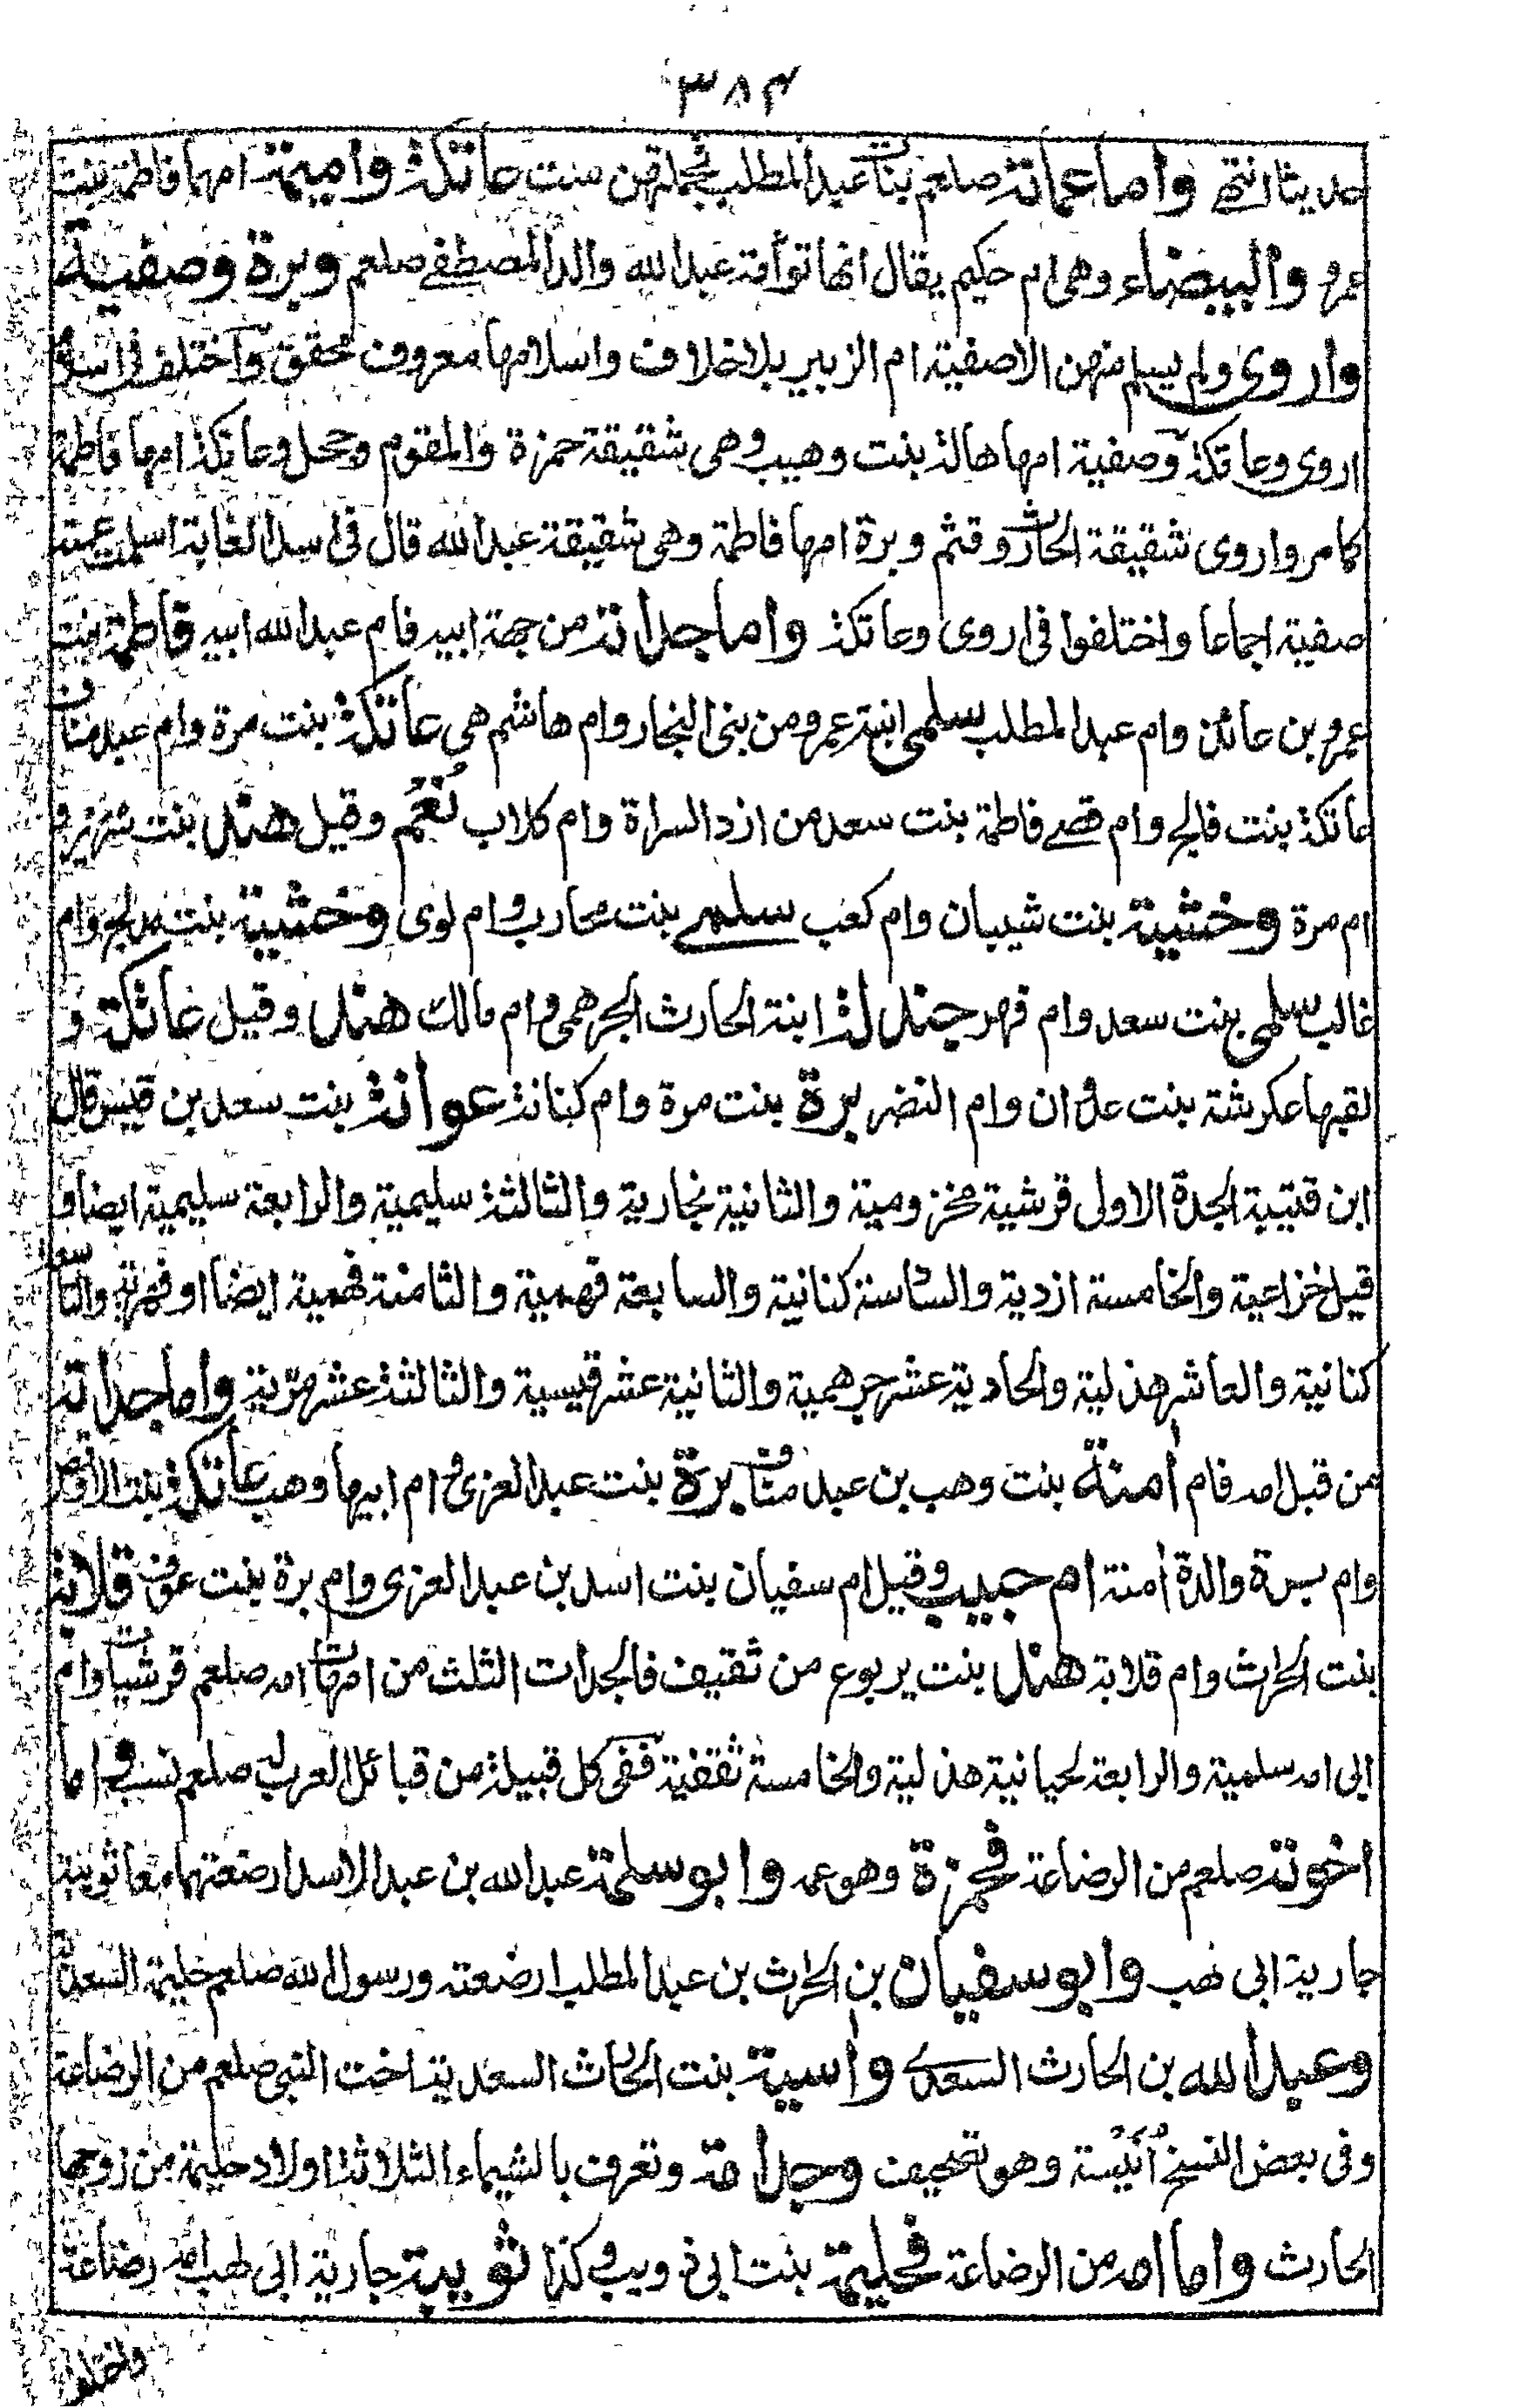 ٣٨٤
حديثا انتهى واما عماته صلعم بنات عبد المطلب فجملتهن ست عاتكة واميمة امهما فاطمة بنت
عمرو والبيضاء وهى ام حكيم يقال انها توأمة عبد الله والد المصطفے صلعم وبرة وصفية
واروى ولم يسلم منهن الا صفية ام الزبير بلا خلاف واسلامها معروف محقق واختلف فى اسلام
اروى وعاتكة وصفية امها هالة بنت وهيب وهى شقيقة حمزة والمقوم وحجل وعاتكة امها فاطمة
كما مر واروى شقيقة الحارث وقثم وبرة امها فاطمة وهى شقيقة عبد الله قال فى اسد الغابة اسلمت عمته
صفية اجماعا واختلفوا فى اروى وعاتكة واما جداته من جهة ابيه فام عبد الله ابيه فاطمة بنت
عمرو بن عائذ وام عبد المطلب سلمى ابنة عمرو من بنى النجار وام هاشم هى عاتكة بنت مرة وام عبد مناف
عاتكة بنت فالج وام قصے فاطمة بنت سعد من ازد السراة وام كلاب نُعْم وقيل هند بنت سرير و
ام مرة وخشية بنت شيبان وام كعب سلمے بنت محارب وام لوى وخشية بنت مدلج وام
غالب سلمى بنت سعد وام فهر جندلة ابنة الحارث الجرهمى وام مالك هند وقيل عاتكة و
لقبها عكرشة بنت عدان وام النضر برة بنت مرة وام كنانة عوانة بنت سعد بن قيس قال
ابن قتيبة الجدة الاولى قرشية مخزومية والثانية نجارية والثالثة سليمية والرابعة سليمية ايضا و
قيل خزاعية والخامسة ازدية والسادسة كنانية والسابعة فهمية والثامنة فهمية ايضا او فهرية والتاسعة
كنانية والعاشر هذلية والحادية عشر جرهمية والثانية عشر قيسية والثالثة عشر مرّية واما جداته
من قبل امه فام اٰمنة بنت وهب بن عبد مناف برة بنت عبد العزى وام ابيها وهب عاتكة بنت الاوقص
وام برة والدة اٰمنة ام حبيب وقيل ام سفيان بنت اسد بن عبد العزى وام برة بنت عوف قلابة
بنت الحرث وام قلابة هند بنت يربوع من ثقيف فالجدات الثلث من امهات امه صلعم قرشيات وام
ابى امه سلمية والرابعة لحيانية هذلية والخامسة ثقفية ففى كل قبيلة من قبائل العرب له صلعم نسب واما
اخوته صلعم من الرضاعة فحمزة وهو عمه وابو سلمة عبد الله بن عبد الاسد ارضعتهما معا ثويبة
جارية ابى لهب وابو سفيان بن الحرث بن عبد المطلب ارضعته ورسول الله صلعم حليمة السعدية
وعبد الله بن الحارث السعدى واٰسية بنت الحارث السعدية اخت النبى صلعم من الرضاعة
وفى بعض النسخ اُنَيْسة وهو تصحيف وجدامة وتعرف بالشيماء الثلاثة اولاد حليمة من زوجها
الحارث واما امه من الرضاعة فحليمة بنت ابى ذويب وكذا ثويبة جارية ابى لهب امه رضاعة